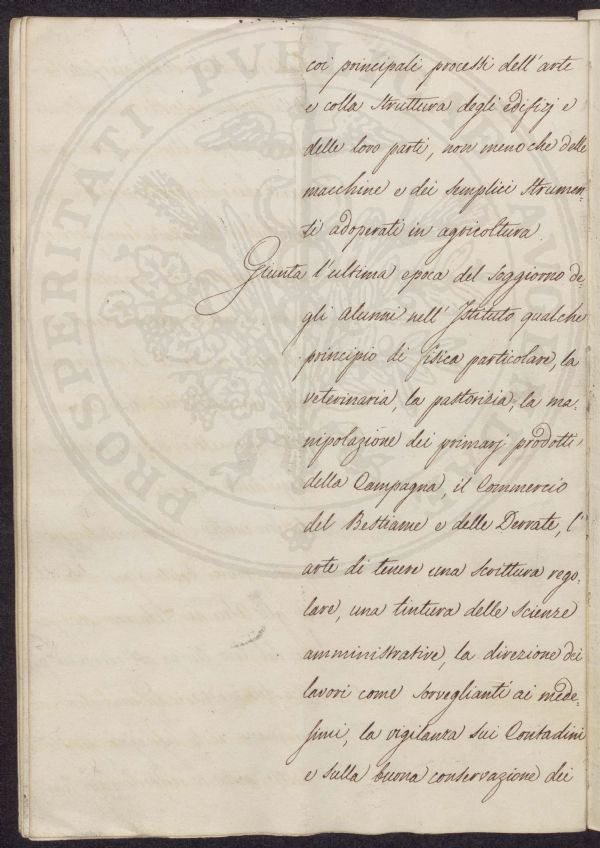 coi principali processi dell'arte
e colla struttura degli edifizj e
delle loro parti, non meno che delle
macchine e dei semplici strumen-
ti adoperati in agricoltura.
Giunta l'ultima epoca del soggiorno de-
gli alunni nell'Istituto, qualche
principio di fisica particolare, la
veterinaria, la pastorizia, la ma-
nipolazione dei primarj prodotti
della Campagna, il Commercio
del Bestiame e delle Derrate, l'
arte di tenere una scrittura rego-
lare, una tintura delle scienze
amministrative, la direzione dei
lavori come sorveglianti ai mede-
simi, la vigilanza sui Contadini
e sulla buona conservazione dei
PROSPERITATI PVBLICAE